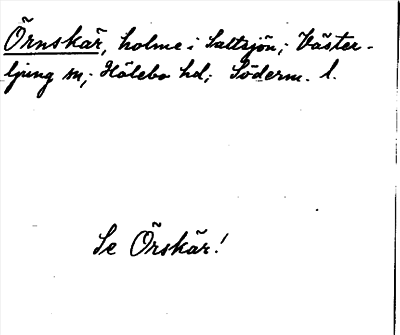 Örnskär, holme i Saltsjön; Väster-
ljung sn; Hölebo hd; Söderm. l.
Se Örskär!